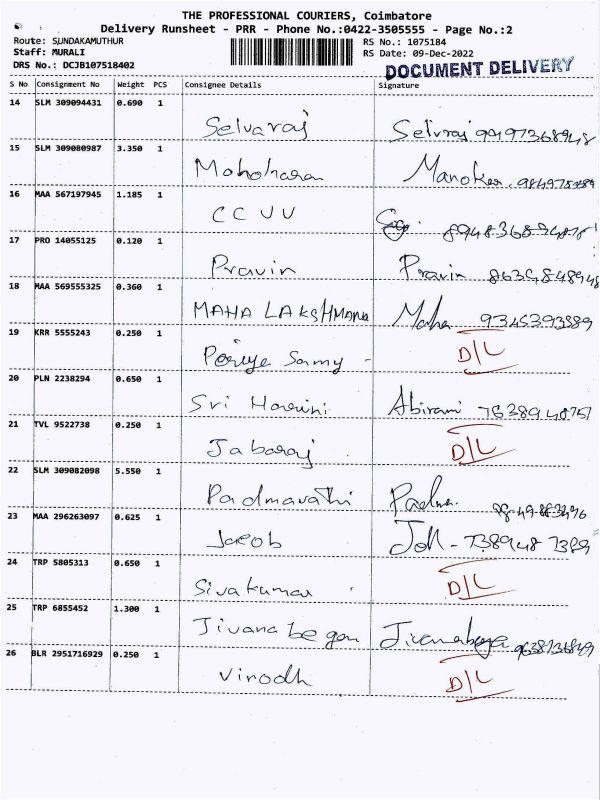 THE PROFESSIONAL COURIERS, Coimbatore
Delivery Runsheet - PRR - Phone No.:0422-3505555 - Page No.:2
Route: SUNDAKAMUTHUR RS No.: 1075184
Staff: MURALI RS Date: 09-Dec-2022
DRS No.: DCJB107518402 DOCUMENT DELIVERY
S No Consignment No Weight PCS Consignee Details Signature
14 SLM 309094431 0.690 1
Selvaraj Selvraj
15 SLM 309080987 3.350 1
Mohoharan
16 MAA 567197945 1.185 1
CCVV
17 PRO 14055125 0.120 1
Pravin Pravin
18 MAA 569555325 0.360 1
MAHA LAKSHMANA Maha 9345393889
19 KRR 5555243 0.250 1
Poriye Samy - D/L
20 PLN 2238294 0.650 1
Sri Harini Abirami
21 TVL 9522738 0.250 1
Jabaraj D/L
22 SLM 309082098 5.550 1
Padmavathi Padma
23 MAA 296263097 0.625 1
Jacob
24 TRP 5805313 0.650 1
Sivakumar D/L
25 TRP 6855452 1.300 1
Jivana began
26 BLR 2951716929 0.250 1
Virodh D/L